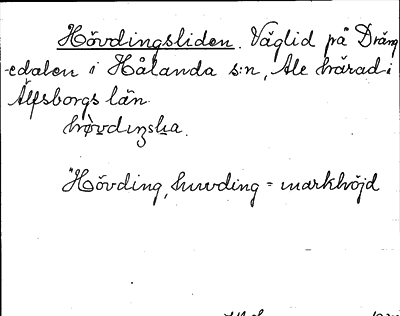 Hövdingsliden. Väglid på Dräng
-edalen i Hålanda s:n, Ale härad i
Älfsborgs län.
"Hövding, huvding = markhöjd